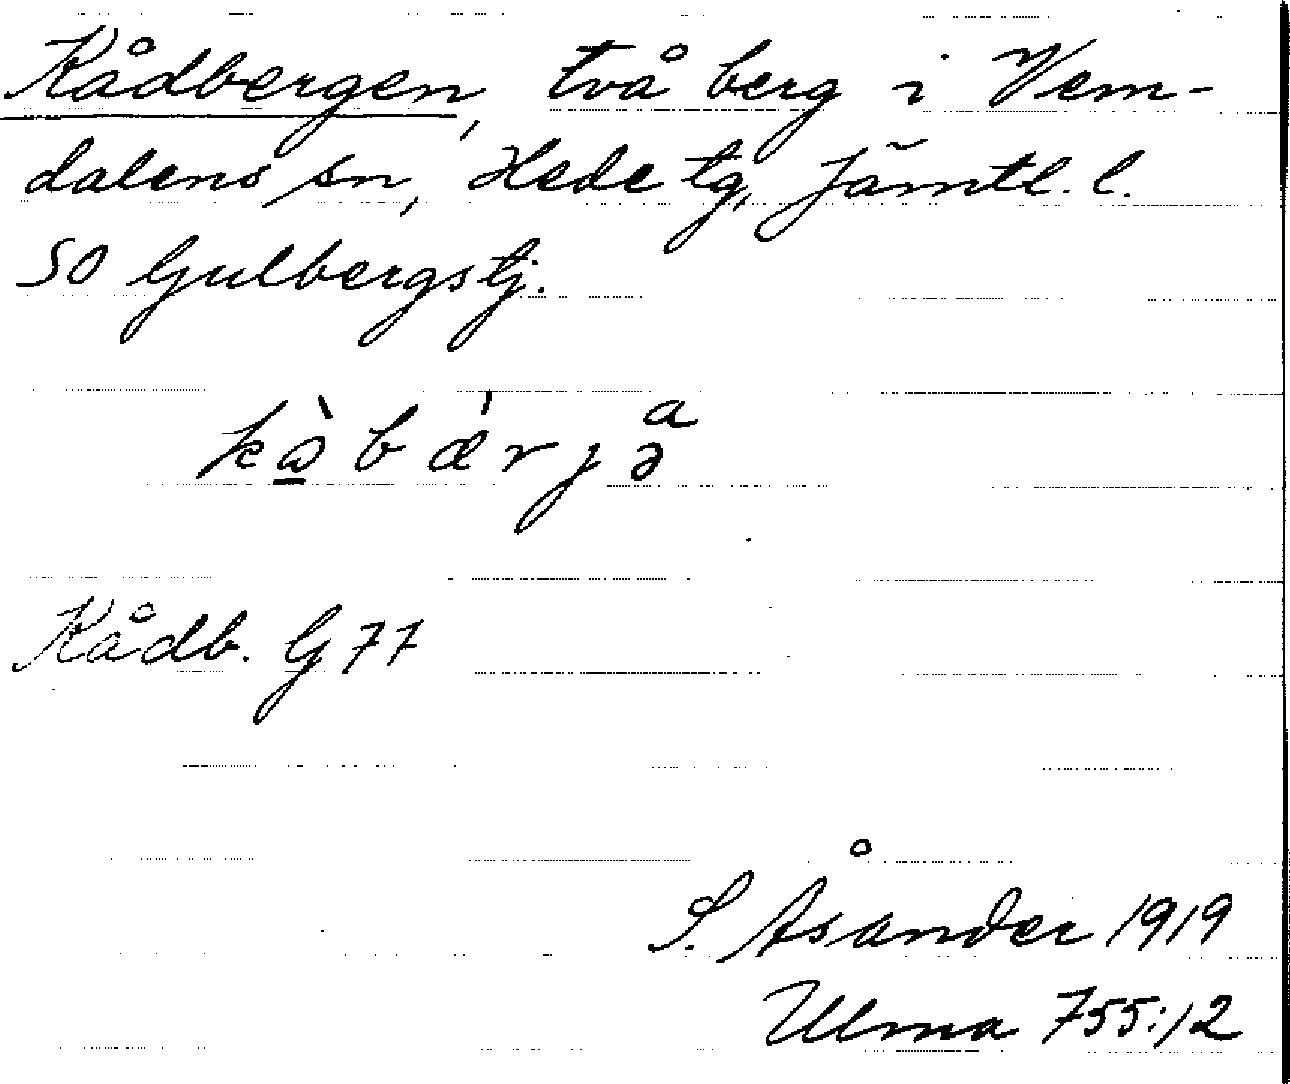 Kådbergen, två berg i Vem-
dalens sn, Hede tg, Jämtl. l.
SO Gulbergstj.
kɷ̱̀bǽrjəᵃ
Kådb. G 77
S. Åsander 1919
Ulma 755:12